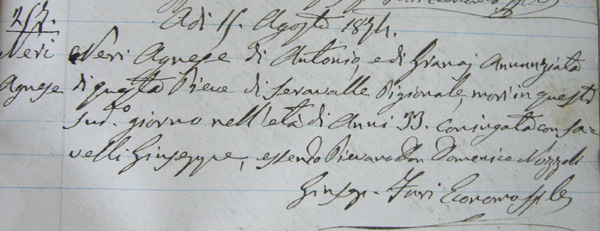 257. Adì 15. Agosto 1874.
Neri Neri Agnese di Antonio, e di Granaj Annunziata
Agnese di questa Pieve di Seravalle Pigionale, morì in questo
sud.o giorno nell'età di Anni 33. coniugata con Sa-
velli Giuseppe, essendo Pievano Don Domenico Nozzoli
Giusep. Turi Economo Sp.le